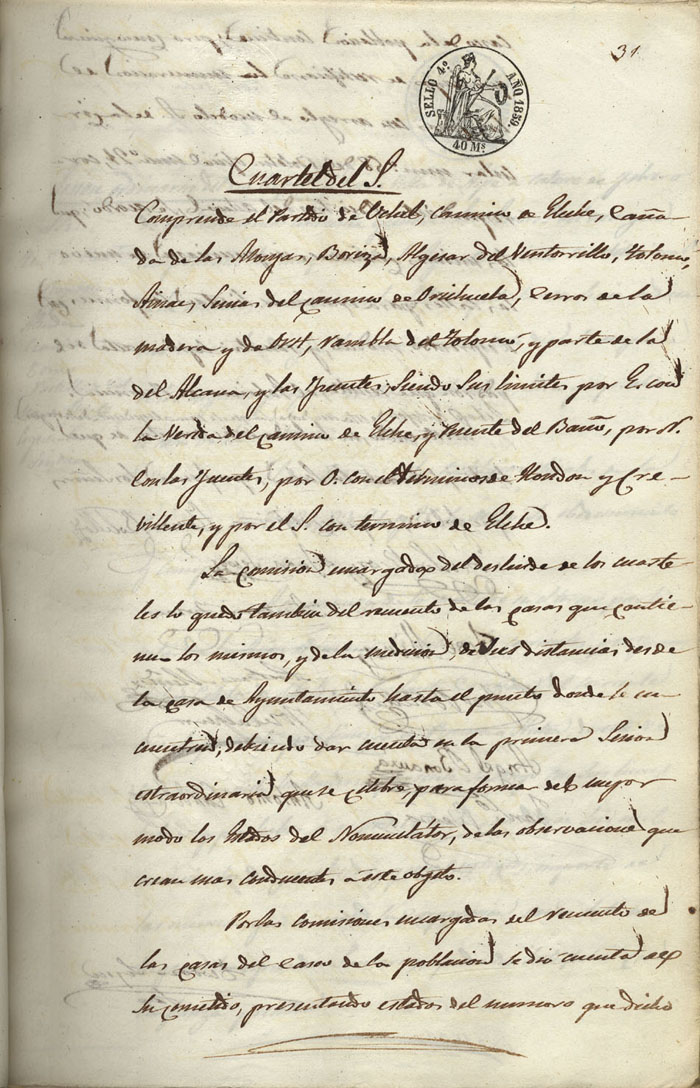 31
SELLO 4º. AÑO 1859.
40 Ms.
Cuartel del S.
Comprende el Partido de Uchel, Camino de Elche, Caña-
da de las Monjas, Algesar del Ventorrillo, Tolomó,
Ainaes, Senias del camino de Orihuela, Cerros de la
madera y de Ors, rambla del Tolomó, y parte de la
del Alcana, y las fuentes, siendo sus limites por E. con
la Vereda del camino de Elche, y Puente del Baño, por N.
con las fuentes, por O. con el terminos de Hondon y Cre-
villente, y por el S. con termino de Elche.
La comision encargada del deslinde de los cuarte-
les lo quedó tambien del recuento de las casas que contie-
nen los mismos, y de la medicion de sus distancias desde
la casa de Ayuntamiento hasta el punto donde se en-
cuentran, debiendo dar cuenta en la primera sesion
estraordinaria que se celebre, para formar del mejor
modo los Estados del Nomenclátor, de las observaciones que
crean mas conducentes a este objeto.
Por las comisiones encargadas del recuento de
las casas del casco de la poblacion se dió cuenta de
su cometido, presentando estados del numero que dicho